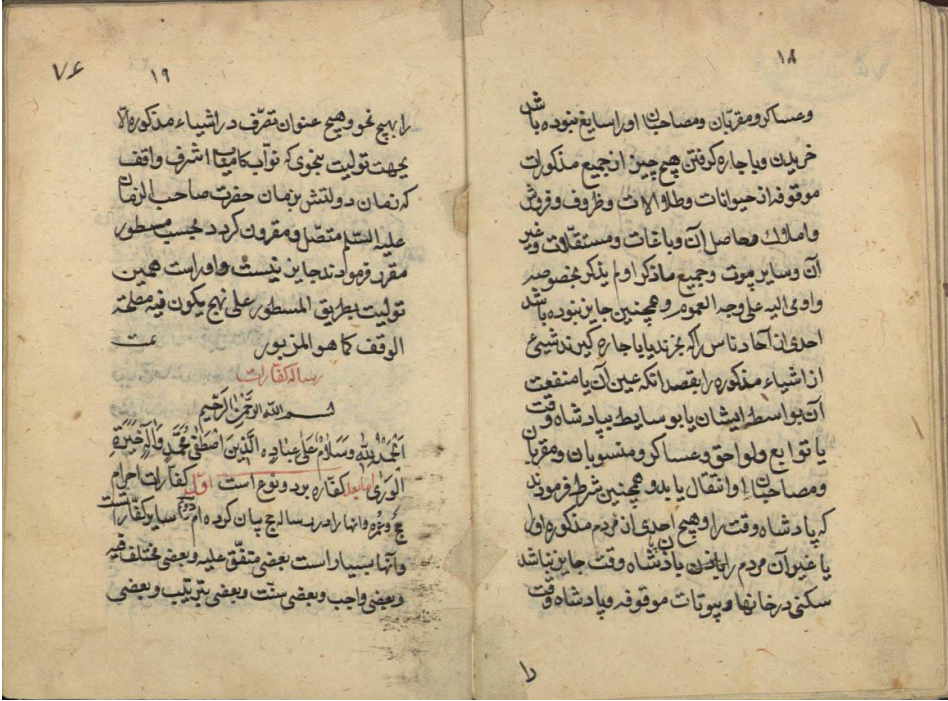 ۱۸
وعساکر و مقربان ومصاحبان اورا سایغ نبوده باشد
خریدن و یا جاره کرفتن هیچ چیز از جمیع مذکورات
موقوفه از حیوانات وطلا والات وظروف وفروش
واملاک ومحاصل آن وباغات ومستقلات وغیر
آن وسایر بیوت وجمیع ماذکر اولم یذکر بخصوصه
واومی الیه علی وجه العموم وهمچنین جایز نبوده باشد
احدی از آحاد ناس را که بخرند یا باجاره کیرند شیئی
از اشیاء مذکوره را بقصد انکه عین آن یا منفعت
آن بواسطه ایشان یا بوسایط بپادشاه وقت
یا توابع ولواحق وعساکر ومنسوبان ومقربان
ومصاحبان او انتقال یابد وهمچنین شرط فرمودند
که پادشاه وقت را وهیچ احدی از مردم مذکوره اورا
یا غیر آن مردم را باذن پادشاه وقت جایز نباشد
سکنی در خانها وبیوتات موقوفه وپادشاه وقت
را
۷۶
۱۹
را بهیچ نحو وهیچ عنوان تصرف در اشیاء مذکوره الا
بجهت تولیت بنحوی که نواب کامیاب اشرف واقف
که زمان دولتش بزمان حضرت صاحب الزمان
علیه السلم متصل ومقرون کردد بحسب مسطور
مقرر فرمودند جایز نیست واوراست همین
تولیت بطریق المسطور علی نهج یکون فیه مصلحة
الوقف کما هو المزبور تمت
رساله کفارات
بسم الله الرحمن الرحیم
الحمد لله وسلام علی عباده الذین اصطفی محمد وآله خیرة
الوری اما بعد کفاره بر دو نوع است اول کفارات احرام
حج وعمره وانها را در رساله حج بیان کرده ام دوم سایر کفارات
وانها بسیار است بعضی متفق علیه وبعضی مختلف فیه
وبعضی واجب وبعضی سنت وبعضی بترتیب وبعضی